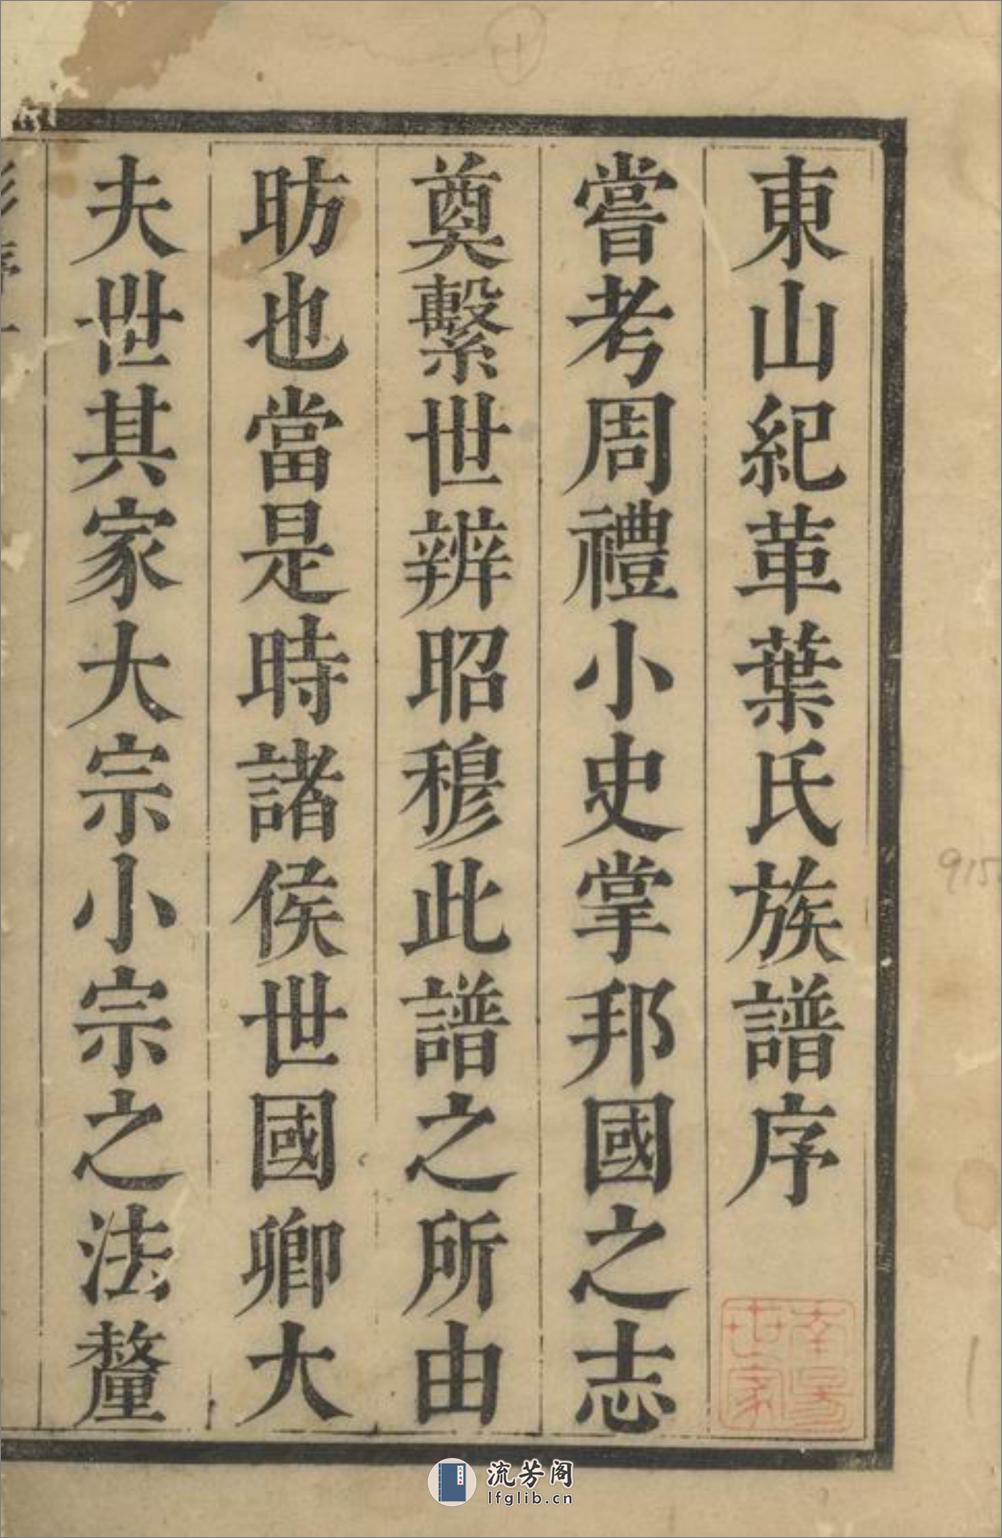 東山紀革葉氏族譜序
嘗考周禮小史掌邦國之志
奠繫世辨昭穆此譜之所由
昉也當是時諸侯世國卿大
夫世其家大宗小宗之法釐
流芳阁
lfglib.cn